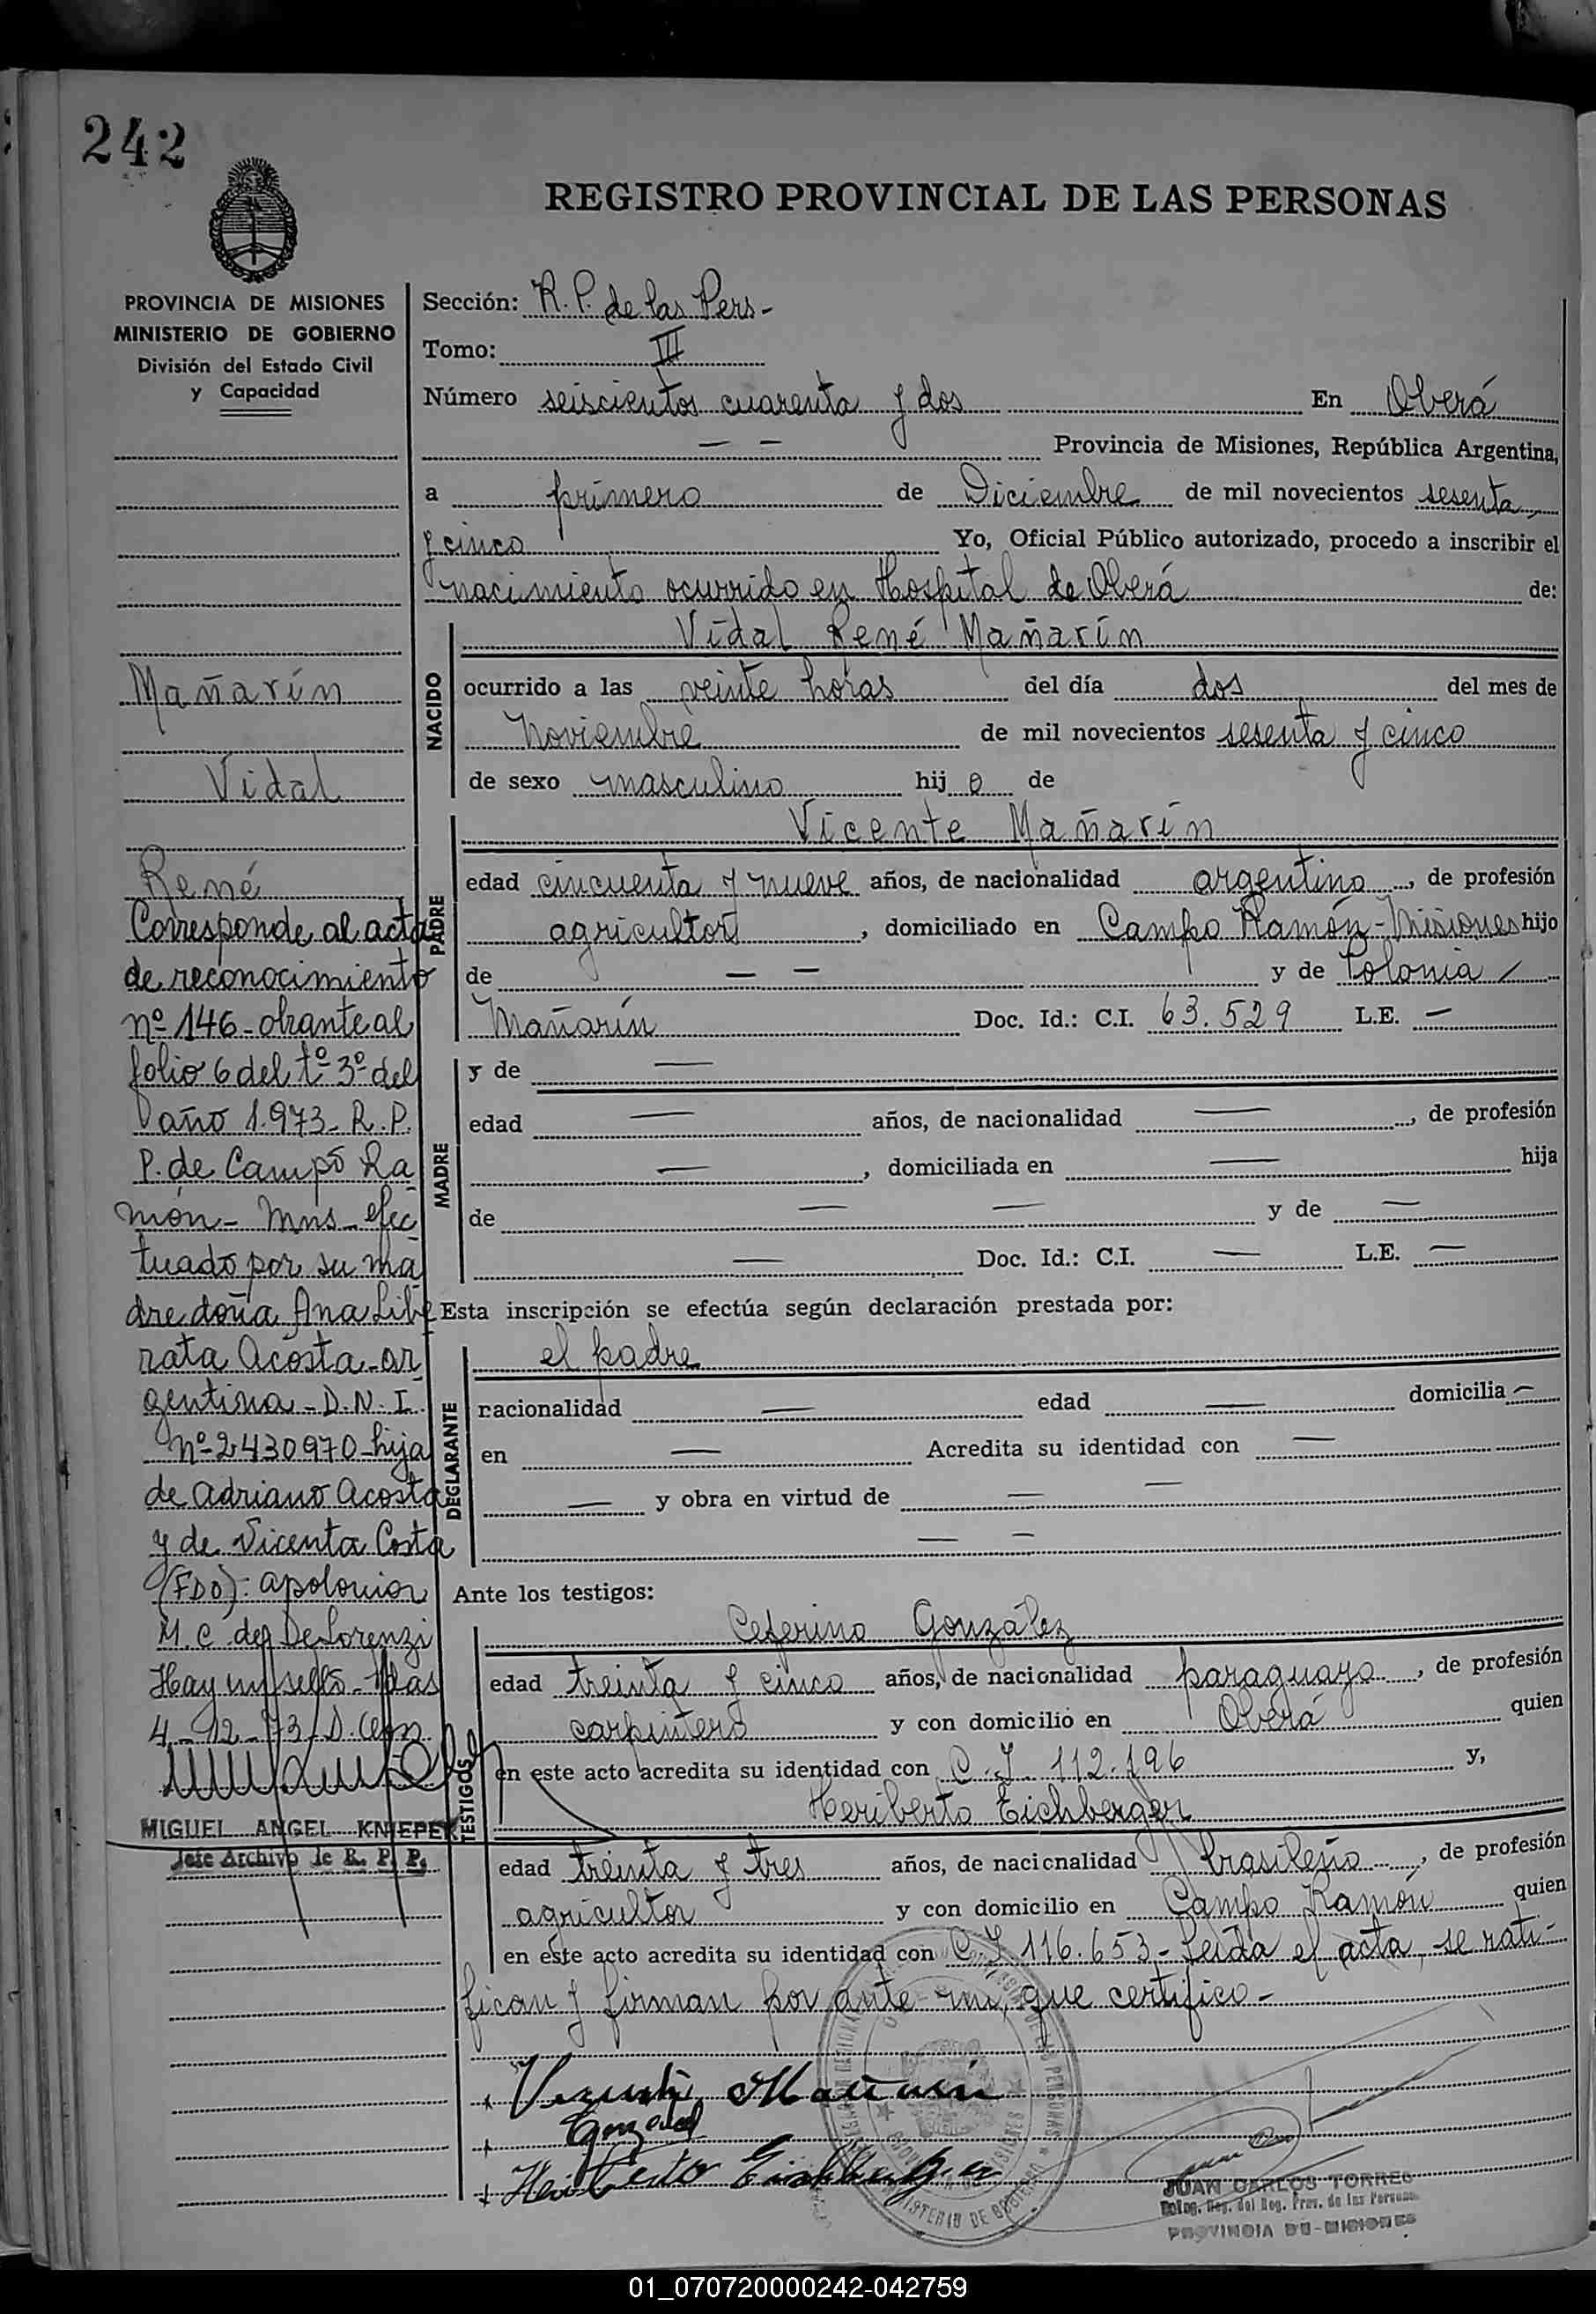 242
REGISTRO PROVINCIAL DE LAS PERSONAS
PROVINCIA DE MISIONES
MINISTERIO DE GOBIERNO
División del Estado Civil
y Capacidad
Mañarín
Vidal
René
Corresponde al acta
de reconocimiento
nº 146 - obrante al
folio 6 del tº 3º del
año 1.973 - R. P.
P. de Campo Ra
món - Mns - efec
tuado por su ma
dre doña Ana Libe
rata Acosta - ar
gentina - D. N. I.
Nº 2430970 - hija
de Adriano Acosta
y de Vicenta Costa
(FDO): Apolonia
M. C. de DeLorenzi
Hay un sello - Pdas
4 - 12 - 73
MIGUEL ANGEL KNIEPER
Jefe Archivo de R. P. P.
Sección: R. P. de las Pers -
Tomo: III
Número seiscientos cuarenta y dos En Oberá
— — Provincia de Misiones, República Argentina,
a primero de Diciembre de mil novecientos sesenta
y cinco Yo, Oficial Público autorizado, procedo a inscribir el
nacimiento ocurrido en Hospital de Oberá de:
NACIDO
Vidal René Mañarín
ocurrido a las veinte horas del día dos del mes de
Noviembre de mil novecientos sesenta y cinco
de sexo masculino hij o de
PADRE
Vicente Mañarín
edad cincuenta y nueve años, de nacionalidad argentino, de profesión
agricultor, domiciliado en Campo Ramón - Misiones hijo
de — — y de Polonia
Mañarín Doc. Id.: C.I. 63.529 L.E. —
MADRE
y de —
edad — años, de nacionalidad —, de profesión
—, domiciliada en — hija
de — — y de —
— Doc. Id.: C.I. — L.E. —
Esta inscripción se efectúa según declaración prestada por:
DECLARANTE
el padre
nacionalidad — edad — domicilia —
en — Acredita su identidad con —
— y obra en virtud de — —
— —
Ante los testigos:
TESTIGOS
Ceferino González
edad treinta y cinco años, de nacionalidad paraguayo, de profesión
carpintero y con domicilio en Oberá quien
en este acto acredita su identidad con C. I. 112.196 y,
Heriberto Eichberger
edad treinta y tres años, de nacionalidad brasileño, de profesión
agricultor y con domicilio en Campo Ramón quien
en este acto acredita su identidad con C I 116.653 - Leída el acta, se rati-
fican y firman por ante mi, que certifico -
Vicente Mañarín
Gonzalez
Heriberto Eichberger
JUAN CARLOS TORRES
Deleg. Reg. del Reg. Prov. de las Personas
PROVINCIA DE MISIONES
01_070720000242-042759